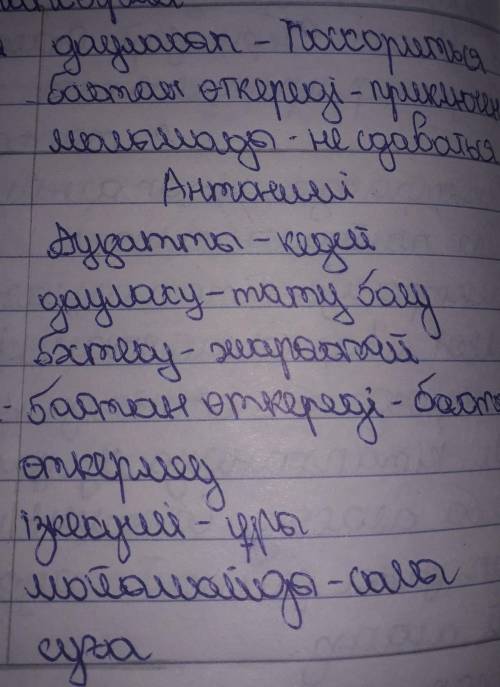 дауласып - Поссориться
бастан өткереді - приключен
мойымады - не сдаваться
Антонимі
Ауқатты - кедей
дауласу - тату болу
бастан өткереді - баста
өткермеу
ізкесуші - ұры
мойымайды - салы
суға